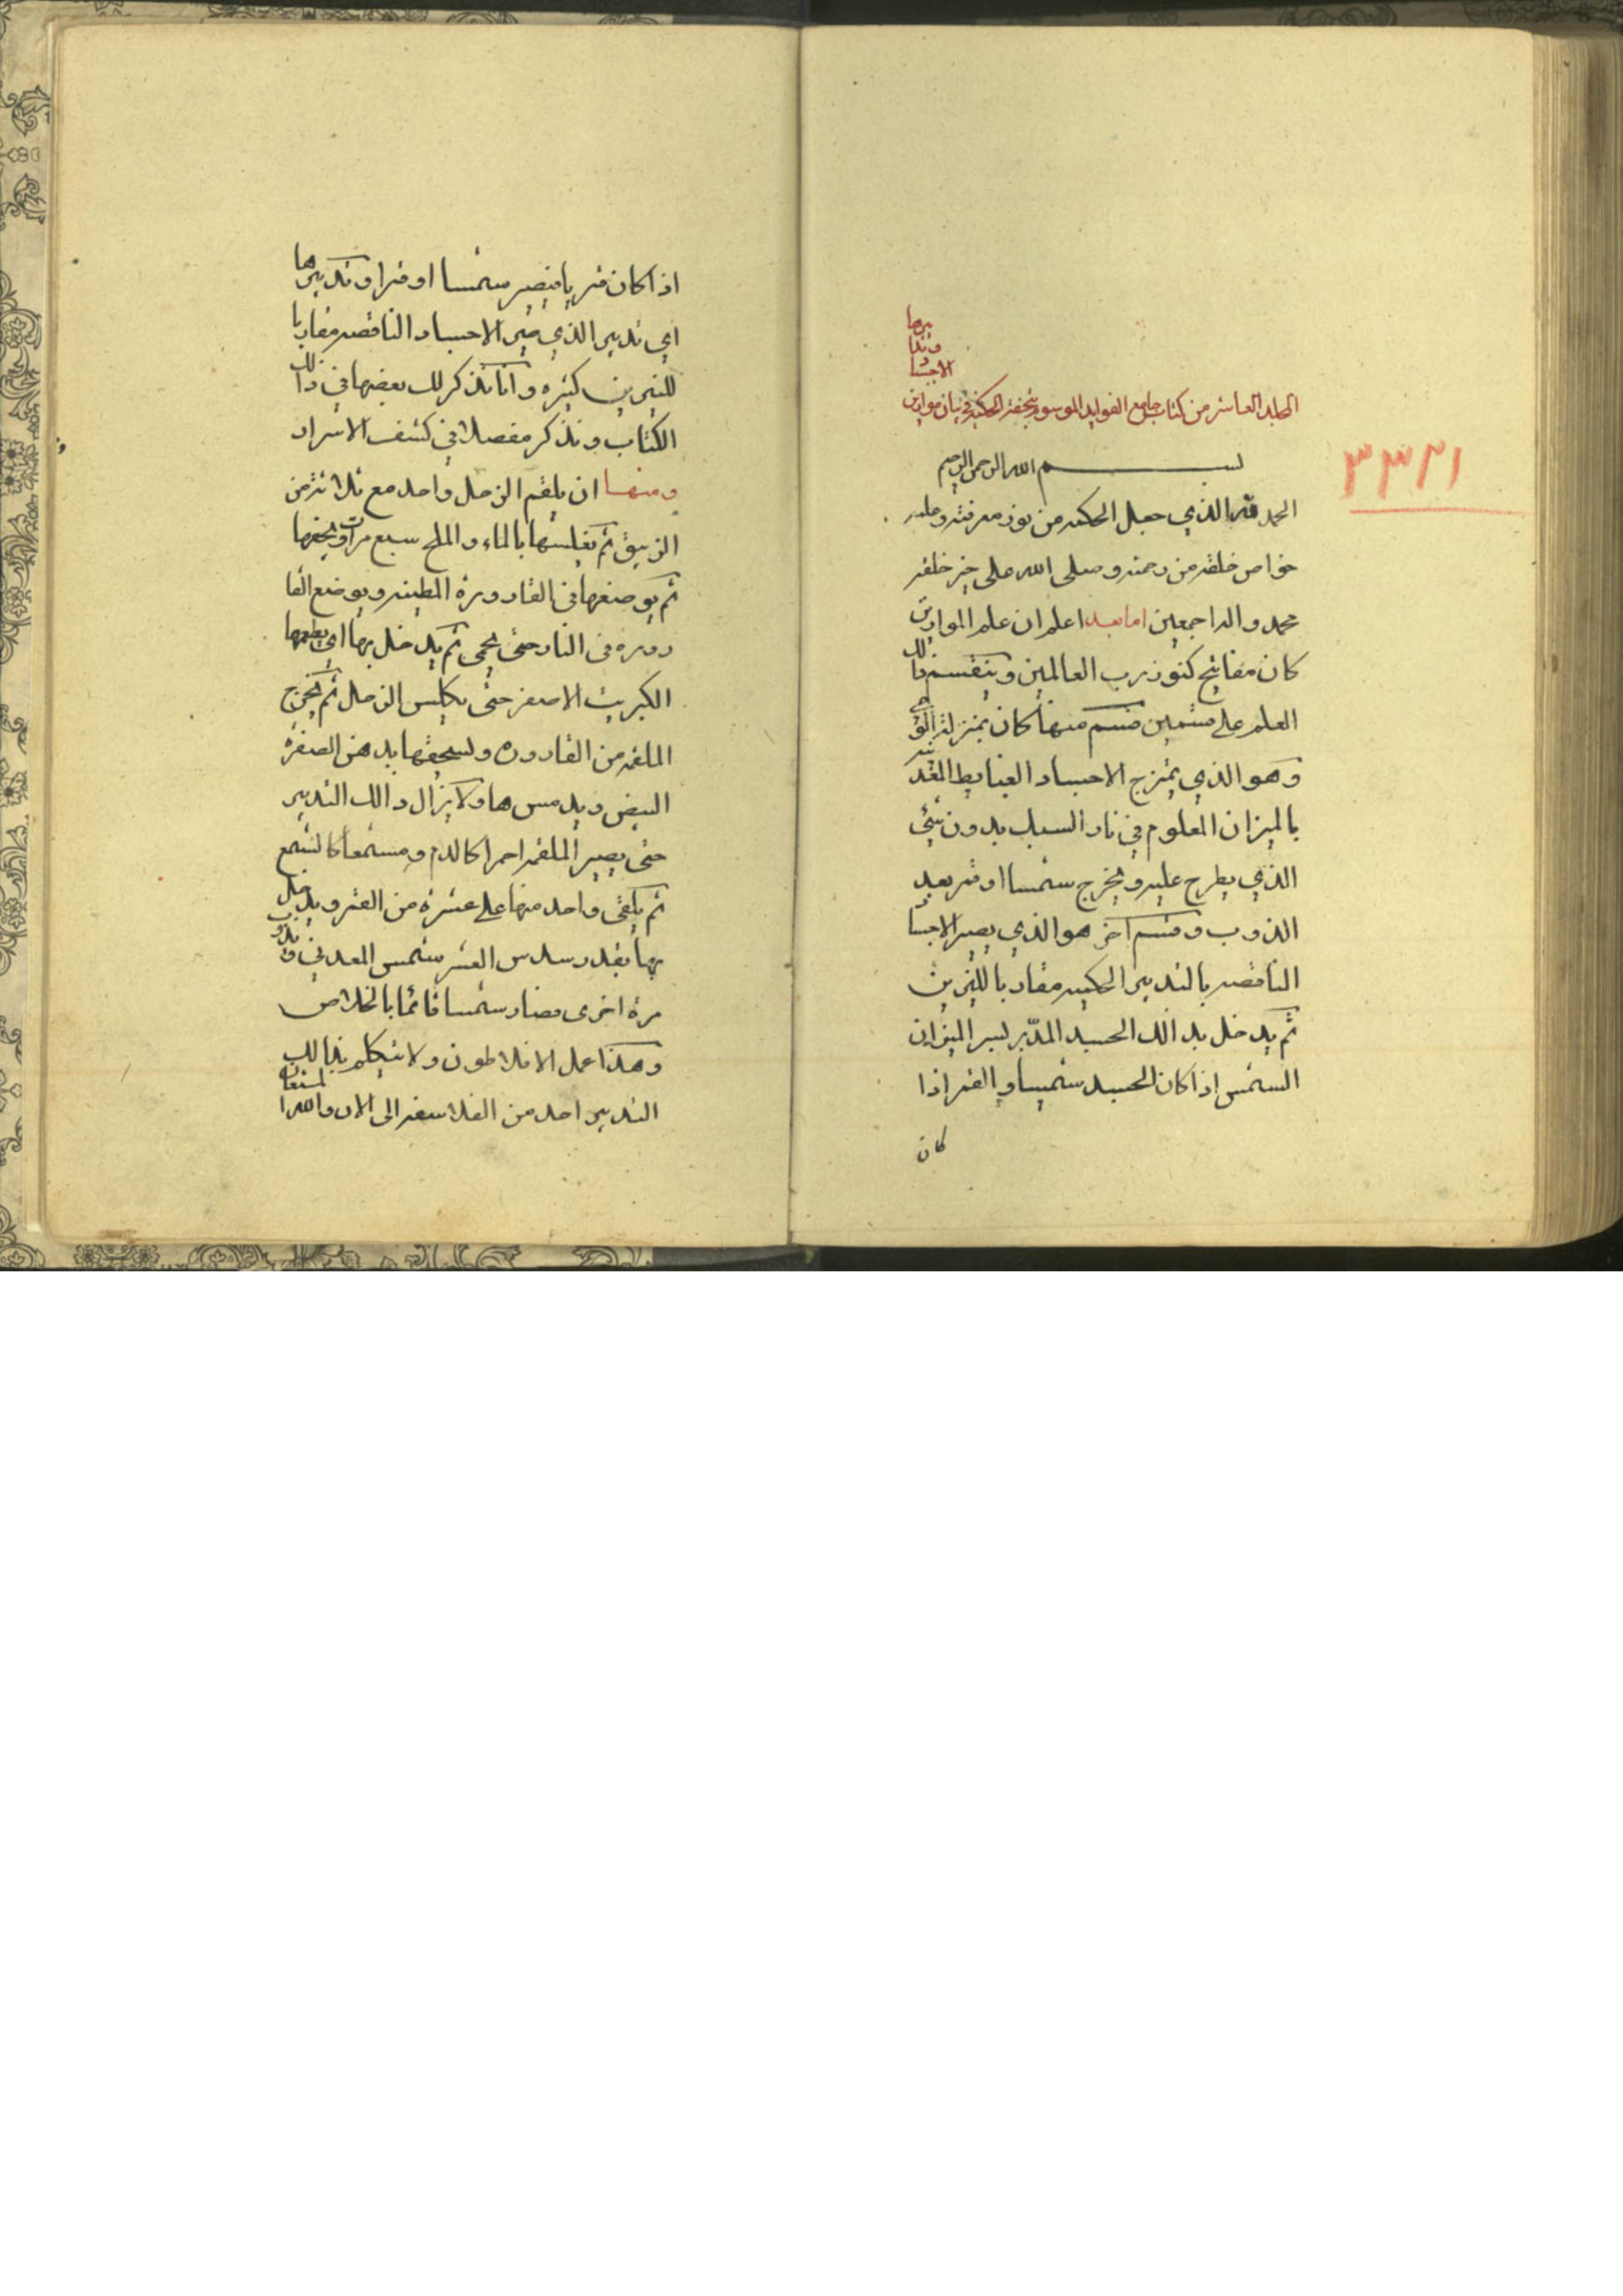 الجلد العاشر من كتاب جامع الفوايد الموسوم بتحفة الحكمة في بيان موازين
الاجساد
وتدا
بيرها
٣٣٢١
بسم الله الرحمن الرحيم
الحمد لله الذي جعل الحكمه من نور معرفته وعلمه
خواص خلقه من رحمته وصلى الله على خير خلقه
محمد واله اجمعين اما بعد اعلم ان علم الموازين
كان مفاتيح كنوز رب العالمين وينقسم ذالك
العلم على قسمين قسم منها كان بمنزلة
وهو الذي يمتزج الاجساد الغبايط
بالميزان المعلوم في نار السبك بدون شئ
الذي يطرح عليه ويخرج شمسا او قمر بعد
الذوب وقسم آخر هو الذي يصير الاجساد
الناقصه بالتدبير الحكميه مقاربا للنيرين
ثم يدخل بذالك الجسد المدبر لسر الميزان
الشمس اذا كان الجسد شمسيا والقمر اذا
كان
اذا كان قمريا فيصير شمسا او قمرا وتدبيرها
اي تدبير الذي صير الاجساد الناقصه مقاربا
للنيرين كثيره وانا نذكر لك بعضها في ذالك
الكتاب ونذكر مفصلا في كشف الاسرار
ومنها ان يلقم الزحل واحد مع ثلاثة من
الزيبق ثم تغلسها بالماء والملح سبع مرات ويجففها
ثم يوضعها في القارورة المطينه ويوضع القا
رورة في النار حتى يحمى ثم يدخل بها اي يطعمها
الكبريت الاصفر حتى يكلس الزحل ثم يخرج
الملغمه من القارورة ويسحقها بدهن الصفرة
البيض ويدمسها ولا يزال ذالك التدبير
حتى يصير الملغمه احمرا كالدم ومشمعا كالشمع
ثم يلقى واحد منها على عشرة من القمر ويدخل
بها بقدر سدس العشر شمس المعدني ويذوب
مرة اخرى فصار شمسا قائما بالخلاص
وهذا عمل الافلاطون ولا يتكلم بذالك
التدبير احد من الفلاسفه الى الان والله المستعان